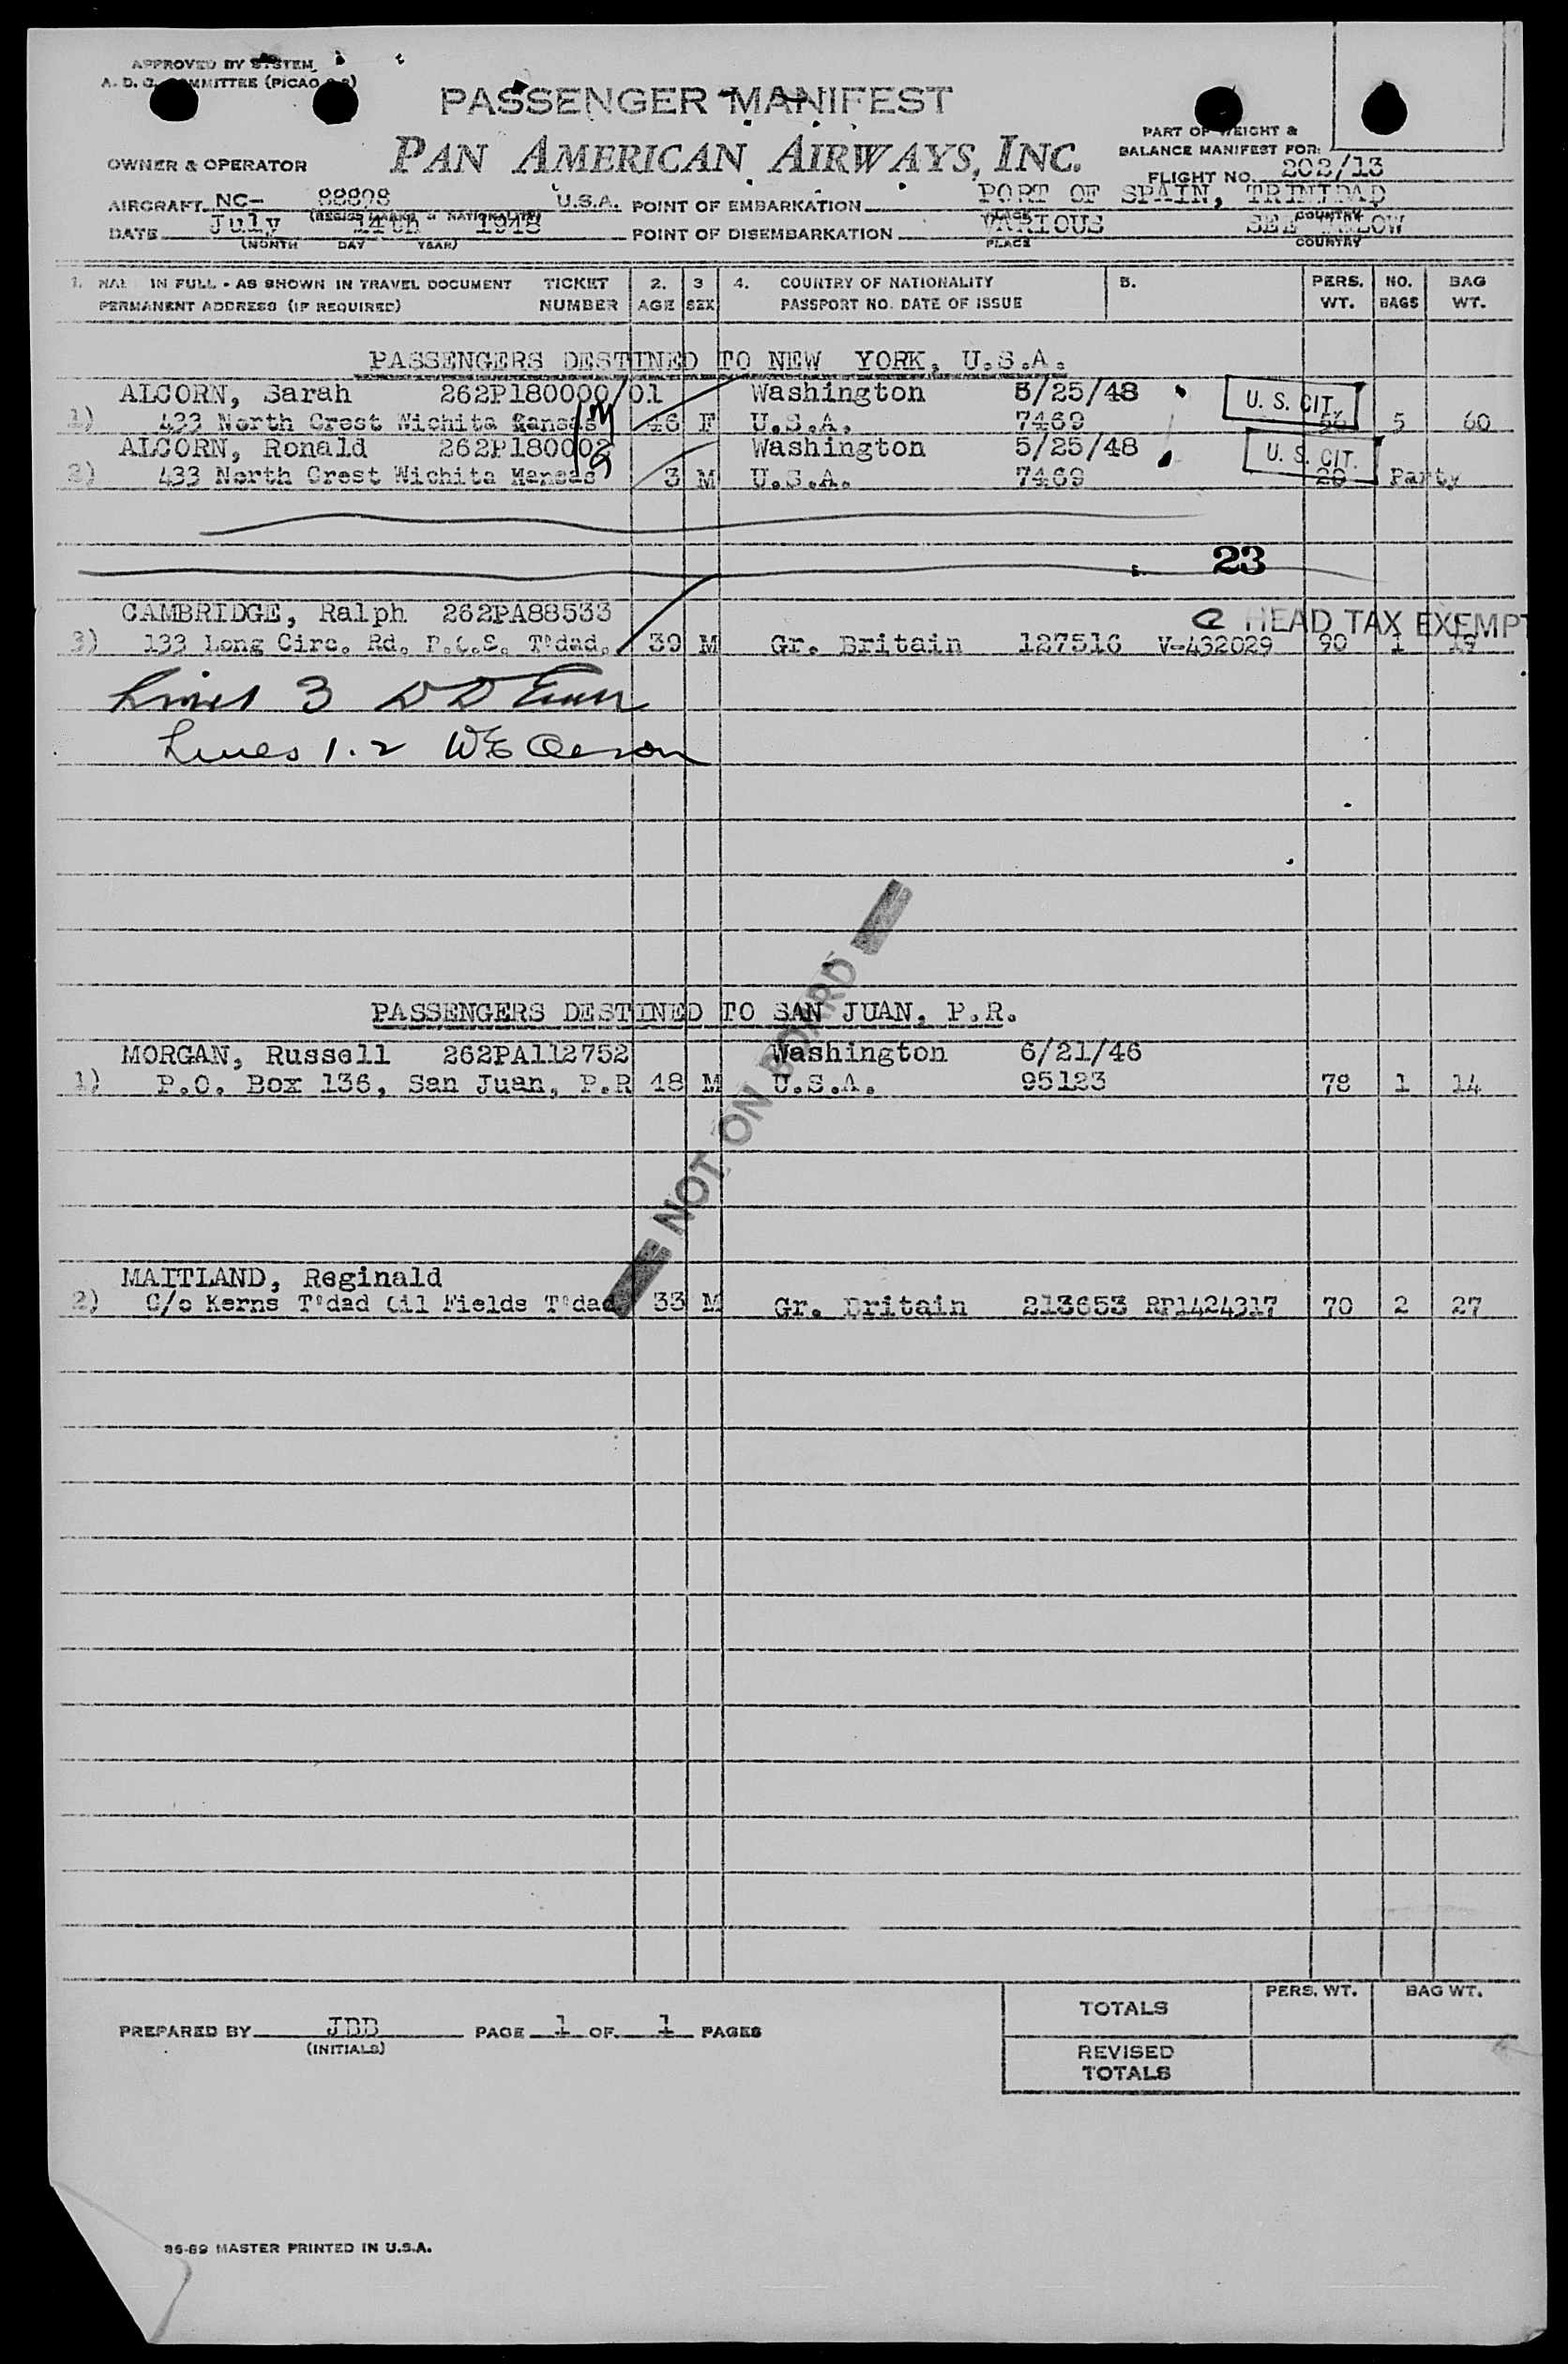 APPROVED BY SYSTEM
A. D. C. COMMITTEE (PICAO
PASSENGER MANIFEST
PAN AMERICAN AIRWAYS, INC.
PART OF WEIGHT &
BALANCE MANIFEST FOR:
FLIGHT NO. 202/13
OWNER & OPERATOR
AIRCRAFT NC- U.S.A. POINT OF EMBARKATION PORT OF SPAIN, TRINIDAD
(REGIS. MARKS & NATIONALITY) PLACE COUNTRY
DATE July 14th 1948 POINT OF DISEMBARKATION VARIOUS SEE BELOW
(MONTH DAY YEAR) PLACE COUNTRY
1. IN FULL - AS SHOWN IN TRAVEL DOCUMENT TICKET 2. 3 4. COUNTRY OF NATIONALITY 5. PERS. NO. BAG
PERMANENT ADDRESS (IF REQUIRED) NUMBER AGE SEX PASSPORT NO. DATE OF ISSUE WT. BAGS WT.
PASSENGERS DESTINED TO NEW YORK, U.S.A.
ALCORN, Sarah 262P180000/01 Washington 5/25/48 U. S. CIT.
1) 433 North Crest Wichita Kansas 46 F U.S.A. 7469 5 60
ALCORN, Ronald 262P180002 Washington 5/25/48 U. S. CIT.
2) 433 North Crest Wichita Kansas 3 M U.S.A. 7469 20 Party
23
CAMBRIDGE, Ralph 262PA88533 HEAD TAX EXEMPT
3) 133 Long Circ. Rd. P.o.S. T'dad. 39 M Gr. Britain 127516 V-432029 90 1 19
Lines 3
Lines 1-2
PASSENGERS DESTINED TO SAN JUAN, P.R.
MORGAN, Russell 262PA112752 Washington 6/21/46
1) P.O. Box 136, San Juan, P.R 48 M U.S.A. 95123 78 1 14
NOT ON BOARD
MAITLAND, Reginald
2) C/o Kerns T'dad Oil Fields T'dad 33 M Gr. Britain 213653 RP1424317 70 2 27
TOTALS PERS. WT. BAG WT.
PREPARED BY JBB PAGE 1 OF 1 PAGES
(INITIALS)
REVISED
TOTALS
36-89 MASTER PRINTED IN U.S.A.